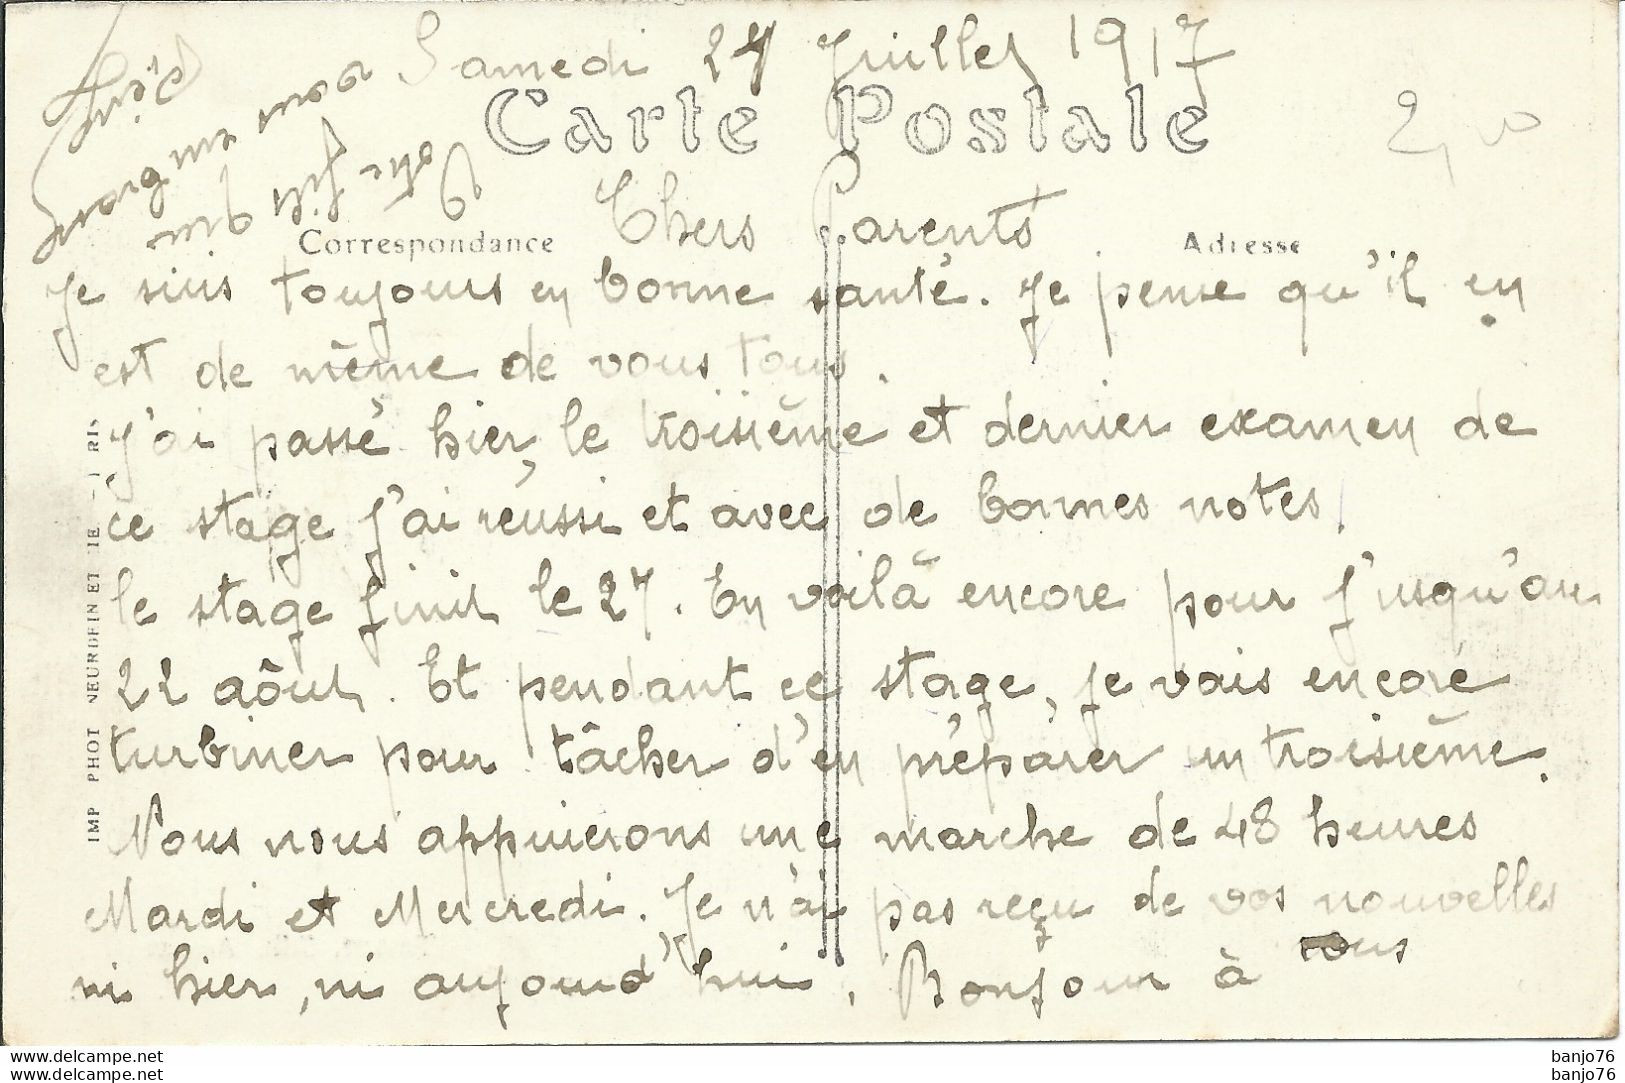 Samedi 21 Juillet 1917
Carte Postale
Correspondance
Adresse
Chers Parents
Je suis toujours en bonne santé. Je pense qu'il en
est de même de vous tous.
J'ai passé hier, le troisième et dernier examen de
ce stage j'ai réussi et avec de bonnes notes.
le stage finit le 27. En voilà encore pour jusqu'au
22 aôut. Et pendant ce stage, je vais encore
turbiner pour tâcher d'en préparer un troisième.
Nous nous appuierons une marche de 48 heures
Mardi et Mercredi. Je n'ai pas reçu de vos nouvelles
ni hier, ni aujourd'hui. Bonjour à tous
Votre fils qui
vous embrasse
IMP PHOT NEURDEIN ET
delcampe.net
delcampe.net
banjo76
banjo76